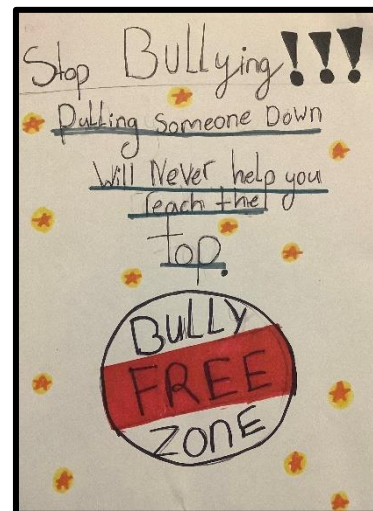 Stop Bullying!!!
Pulling Someone Down
Will Never help you
reach the
top.
BULLY
FREE
ZONE